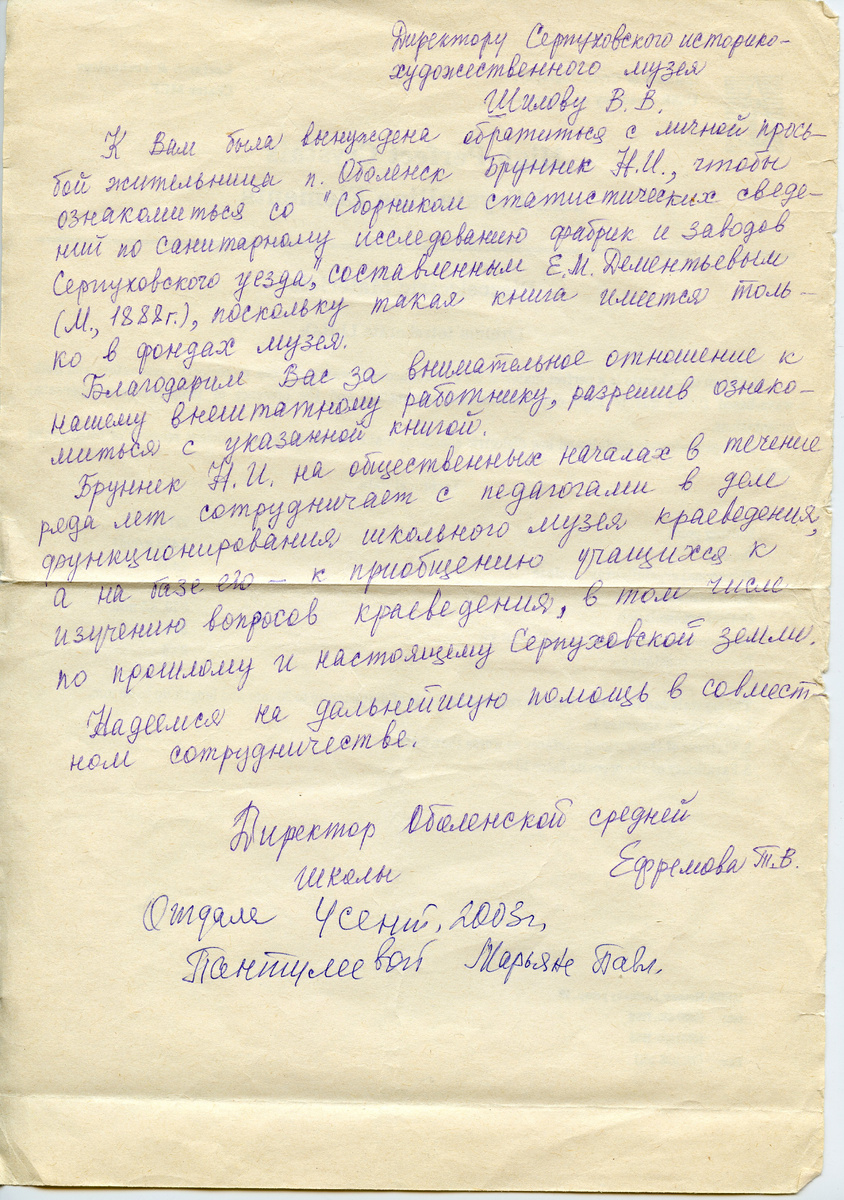 Директору Серпуховского историко-
художественного музея
Шилову В. В.
К Вам была вынуждена обратиться с личной прось-
бой жительница п. Оболенск Бруннек Н.И., чтобы
ознакомиться со "Сборником статистических сведе-
ний по санитарному исследованию фабрик и заводов
Серпуховского уезда", составленным Е.М. Дементьевым
(М., 1888г.), поскольку такая книга имеется толь-
ко в фондах музея.
Благодарим Вас за внимательное отношение к
нашему внештатному работнику, разрешив ознако-
миться с указанной книгой.
Бруннек Н.И. на общественных началах в течение
ряда лет сотрудничает с педагогами в деле
функционирования школьного музея краеведения,
а на базе его – к приобщению учащихся к
изучению вопросов краеведения, в том числе
по прошлому и настоящему Серпуховской земли.
Надеемся на дальнейшую помощь в совмест
ном сотрудничестве.
Директор Оболенской средней
школы Ефремова Т.В.
Отдала 4 сент. 2003г.
Пантулеевой Марьяне Павл.